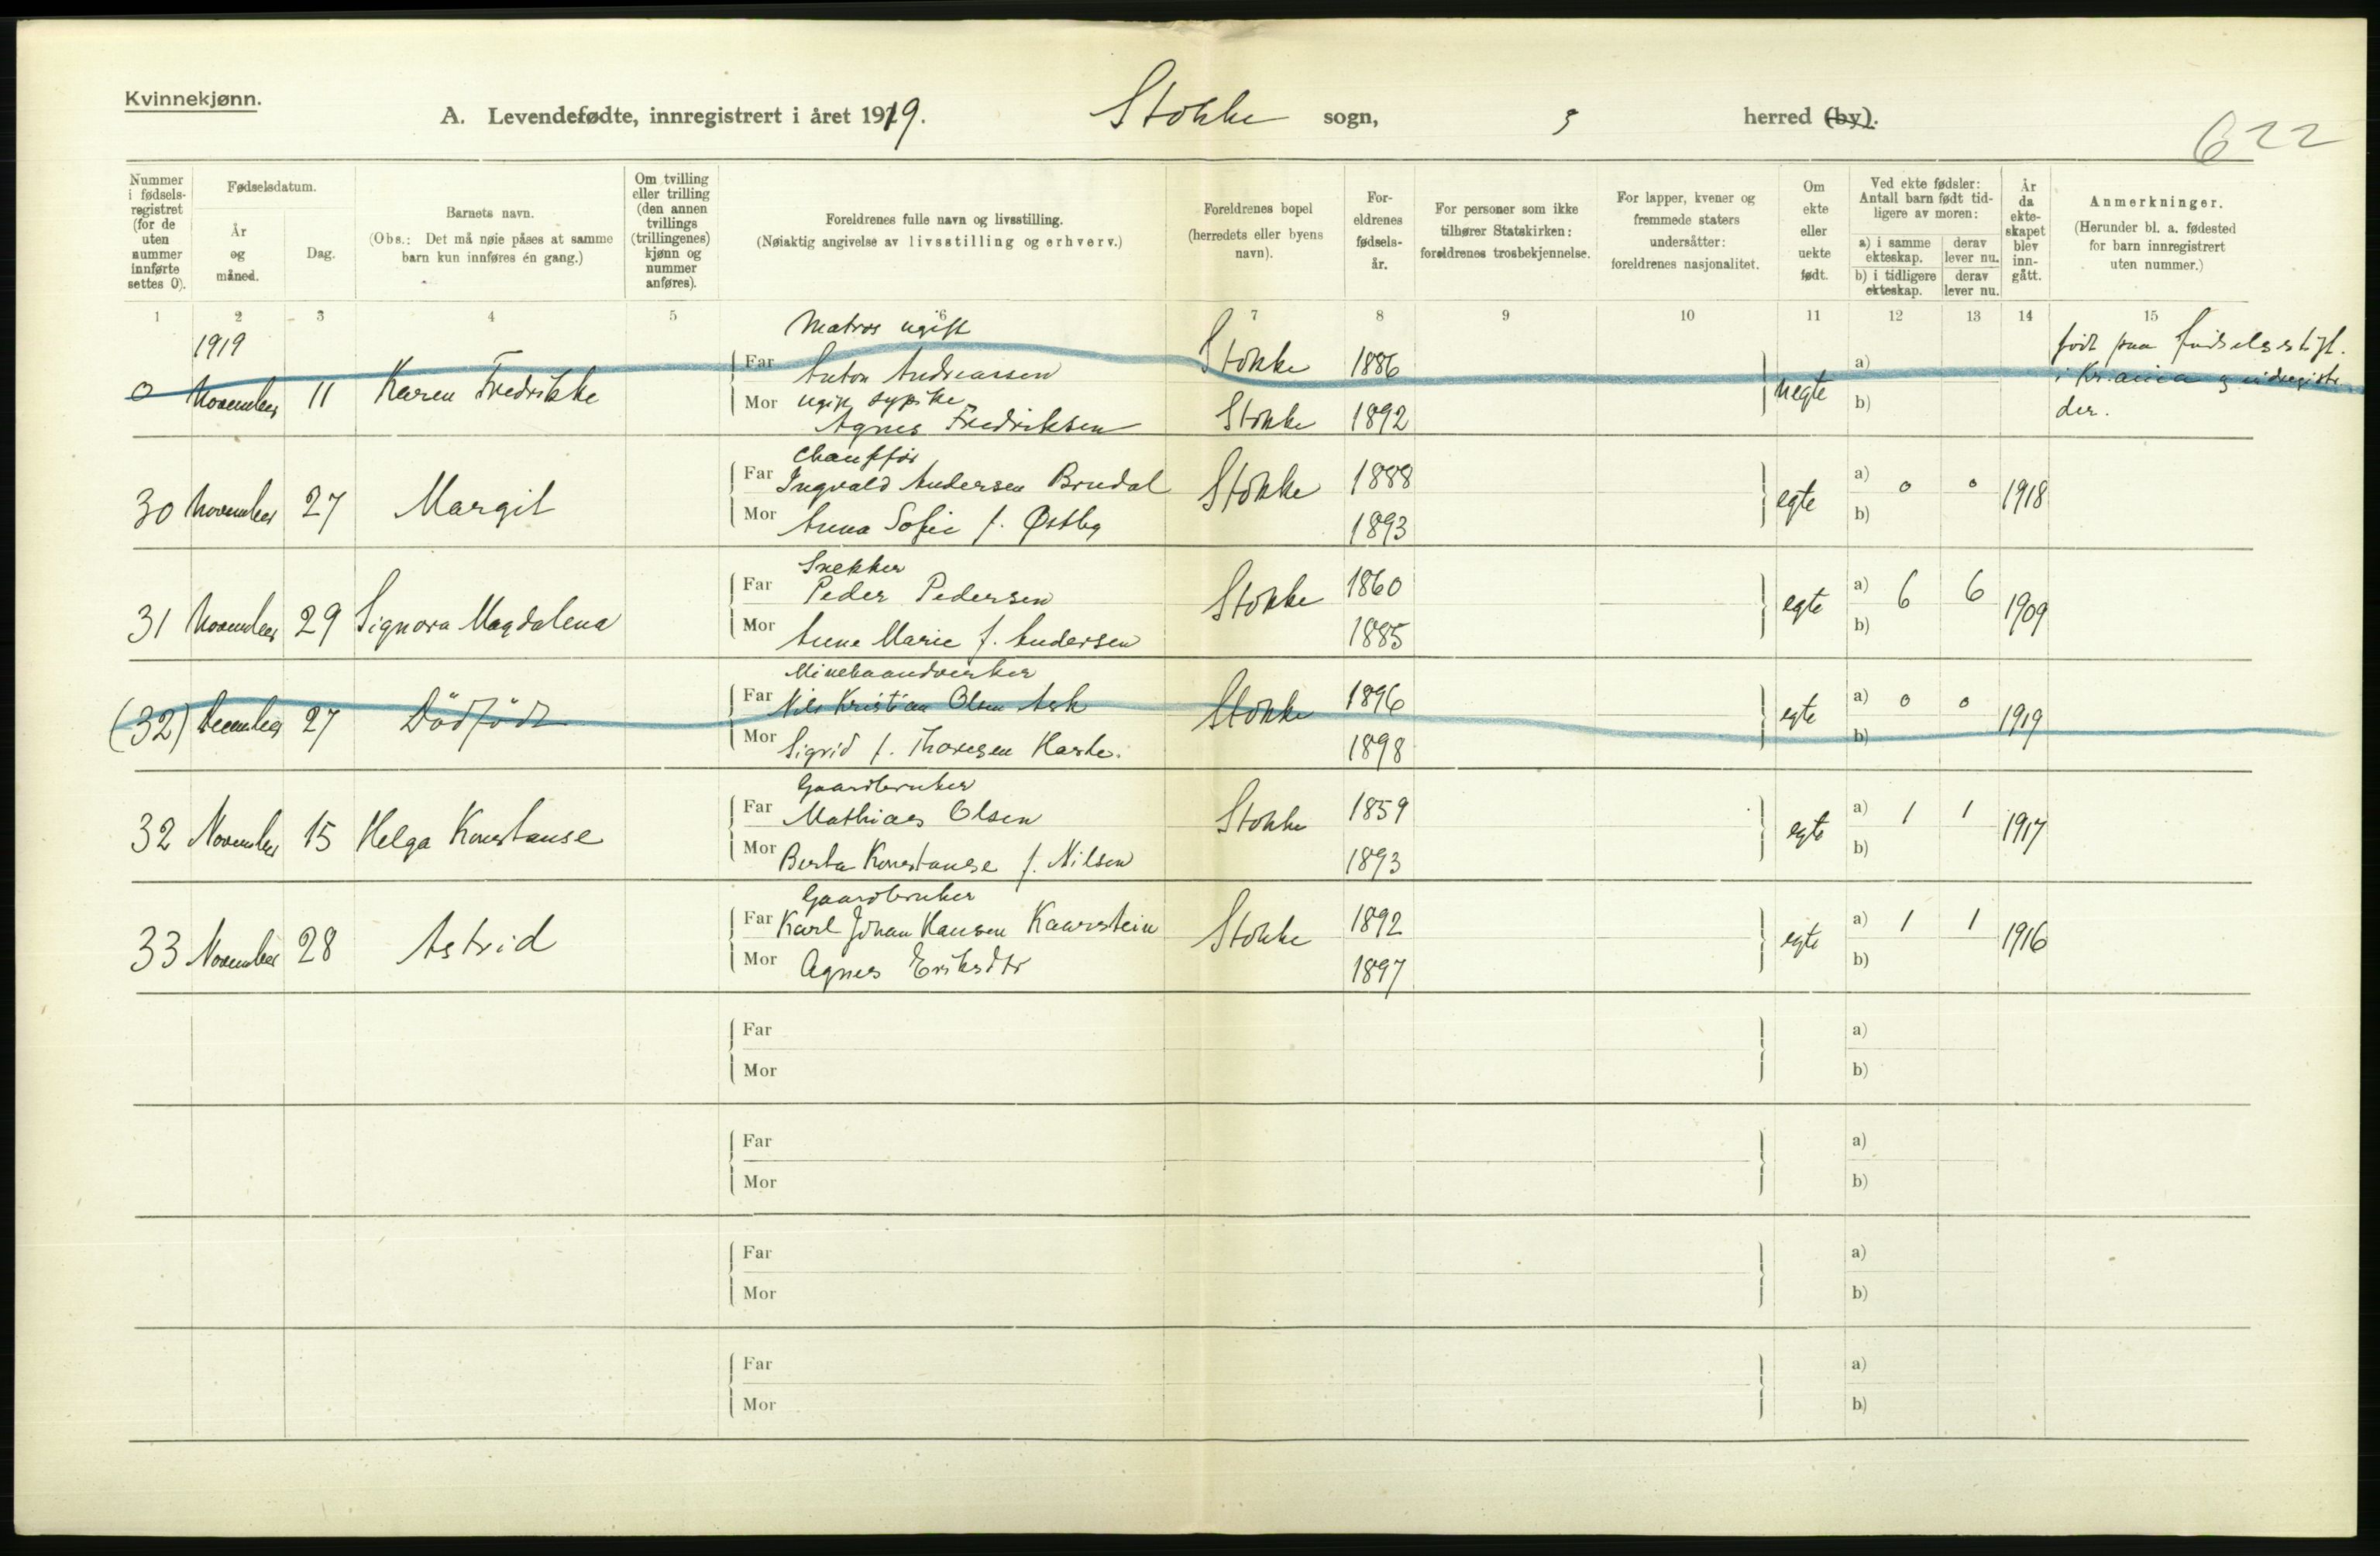 Kvinnekjønn.
A. Levendefødte, innregistrert i året 1919. Stokke sogn, herred (by).
622
Nummer i fødselsregistret (for de uten nummer innførte settes 0).
Fødselsdatum.
År og måned.
Dag.
Barnets navn.
(Obs.: Det må nøie påses at samme barn kun innføres én gang.)
Om tvilling eller trilling (den annen tvillings (trillingenes) kjønn og nummer anføres).
Foreldrenes fulle navn og livsstilling.
(Nøiaktig angivelse av livsstilling og erhverv.)
Foreldrenes bopel (herredets eller byens navn).
Foreldrenes fødselsår.
For personer som ikke tilhører Statskirken: foreldrenes trosbekjennelse.
For lapper, kvener og fremmede staters undersåtter: foreldrenes nasjonalitet.
Om ekte eller uekte født.
Ved ekte fødsler: Antall barn født tidligere av moren:
a) i samme ekteskap. derav lever nu.
b) i tidligere ekteskap. derav lever nu.
År da ekteskapet blev inngått.
Anmerkninger.
(Herunder bl. a. fødested for barn innregistrert uten nummer.)
1 2 3 4 5 6 7 8 9 10 11 12 13 14 15
1919
Matros ugift
0 November 11 Karen Fredrikke
Far Anton Andreassen Stokke 1886
Mor ugift sypike
Agnes Fredriksen Stokke 1892
uegte a) b)
født paa Fødselsstift.
i Kr.ania og indregistr.
der.
Chauffør
30 November 27 Margit
Far Ingvald Andersen Brudal Stokke 1888
Mor Anna Sofie f. Østby 1893
egte a) 0 0 b) 1918
Snekker
31 November 29 Signora Magdalena
Far Peder Pedersen Stokke 1860
Mor Anne Marie f. Andersen 1885
egte a) 6 6 b) 1909
(32) December 27 Dödfödt
Far Nils Kristian Olsen Ask Stokke 1896
Mor Sigrid f. Thoresen 1898
egte a) 0 0 b) 1919
Gaardbruker
32 November 15 Helga Konstanse
Far Mathias Olsen Stokke 1859
Mor Berta Konstanse f. Nilsen 1893
egte a) 1 1 b) 1917
Gaardbruker
33 November 28 Astrid
Far Karl Johan Hansen Kaarstein Stokke 1892
Mor Agnes Eriksdtr 1897
egte a) 1 1 b) 1916
Far a)
Mor b)
Far a)
Mor b)
Far a)
Mor b)
Far a)
Mor b)